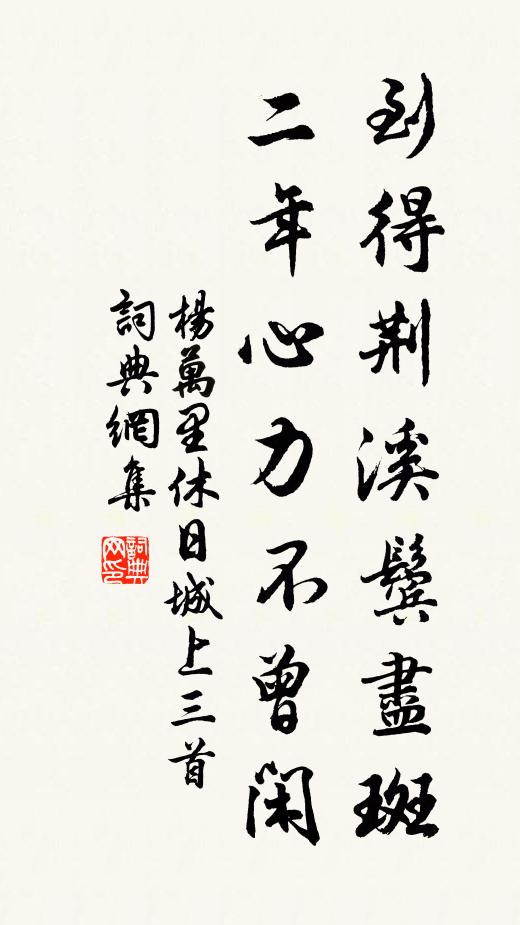 到得荆溪鬢盡斑
二年心力不曾閑
楊萬里休日城上三首
詞典網集
詞典网印